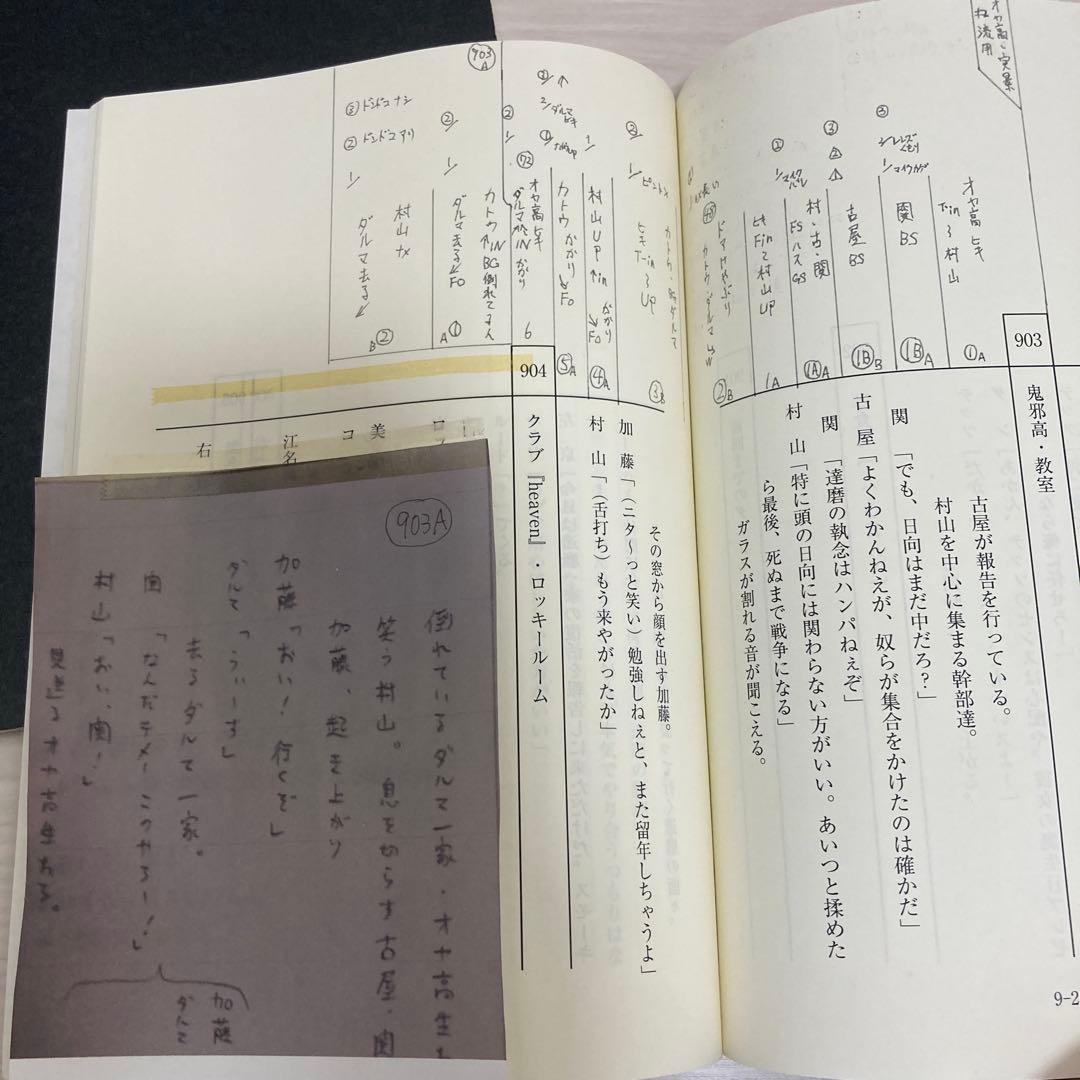 オヤ高・実景
流用
903
鬼邪高・教室
古屋が報告を行っている。
村山を中心に集まる幹部達。
関「でも、日向はまだ中だろ？」
古屋「よくわかんねえが、奴らが集合をかけたのは確かだ」
関「達磨の執念はハンパねぇぞ」
村山「特に頭の日向には関わらない方がいい。あいつと揉めた
ら最後、死ぬまで戦争になる」
ガラスが割れる音が聞こえる。
オヤ高ヒキ
村山
①A
③
2/レンズくもり
1/マイクカゲ
関BS
①B A
③
古屋BS
①B B
②
1/マイクバレ
村・古・関
FS ハス GS
①A A
村山UP
1A
ドアけやぶり
カトウ・ダルマ
②B
9-2
その窓から顔を出す加藤。
加藤「（ニタ〜っと笑い）勉強しねぇと、また留年しちゃうよ」
村山「（舌打ち）もう来やがったか」
904
クラブ『heaven』・ロッキールーム
②
1/ピント×
ヒキ
UP
③B
村山UP
かがり
FO
④A
カトウ かがり
FO
⑤A
オヤ高ヒキ
ダルマ IN かがり
6
903
A
②
1/
カトウ IN
BG倒れてる人
ダルマ去る
FO
A①
③ドンドコナシ
②ドンドコアリ
1/
村山
ダルマ去る
B②
美
コ
江名
右
903A
倒れているダルマ一家・オヤ高生
笑う村山。息をきらす古屋・関
加藤、起き上がり
加藤「おい！行くぞ」
ダルマ「うぃーす」
去るダルマ一家。
関「なんだテメーこのやろー！」
村山「おい、関！」
見送るオヤ高生たち。
加藤
ダルマ